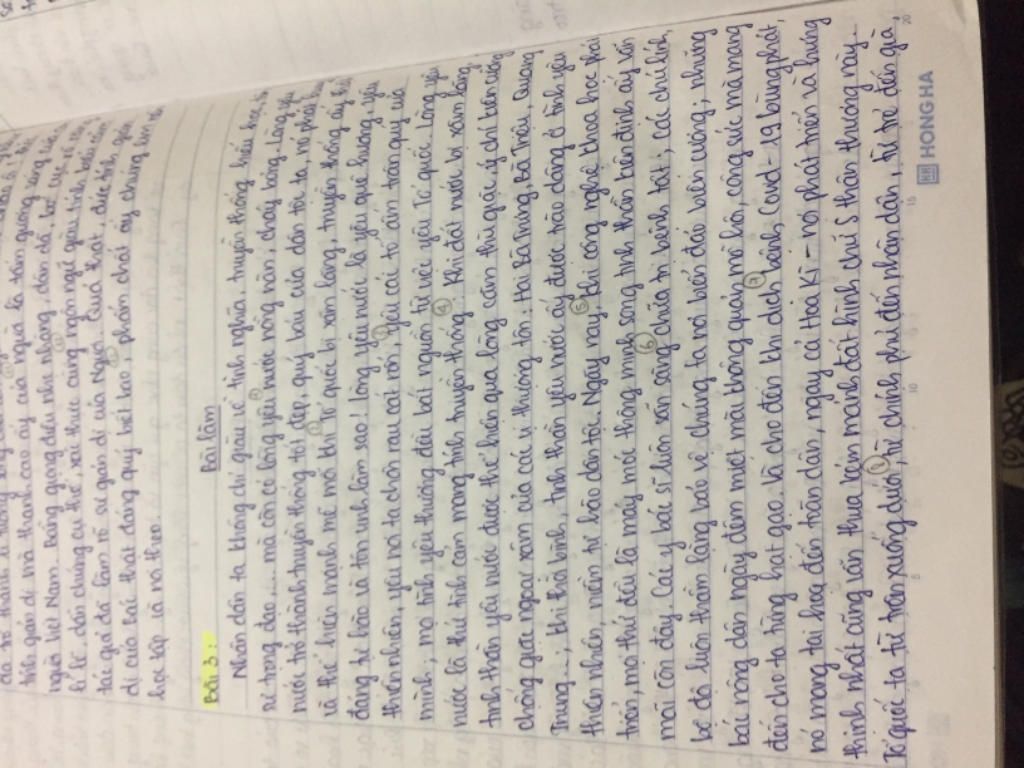 tính giản dị mà thanh cao ấy của người là tấm gương sáng
người Việt Nam. Bằng giọng điệu nhẹ nhàng, dân dã, bố cục rõ
lí lẽ, dẫn chứng cụ thể, xác thực cùng ngôn ngữ giàu hình
tác giả đã làm rõ sự giản dị của Người. Quả thật, đức tính giản
dị của Bác thật đáng quý biết bao, phẩm chất ấy chúng
học tập và noi theo.
Bài 3:
Bài làm
Nhân dân ta không chỉ giàu về tình nghĩa, truyền thống hiếu học,
sư trọng đạo,... mà còn có lòng yêu nước nồng nàn, cháy bỏng. Lòng yêu
nước trở thành truyền thống tốt đẹp, quý báu của dân tộc ta, nó phát huy
và thể hiện mạnh mẽ mỗi khi Tổ quốc bị xâm lăng, truyền thống ấy thật
đáng tự hào và tôn vinh làm sao! Lòng yêu nước là yêu quê hương, yêu
thiên nhiên, yêu nơi ta chôn rau cắt rốn, yêu cái tổ ấm trân quý của
mình, mọi tình yêu thương đều bắt nguồn từ việc yêu Tổ quốc. Lòng yêu
nước là thứ tình cảm mang tính truyền thống. Khi đất nước bị xâm lăng,
tinh thần yêu nước được thể hiện qua lòng căm thù giặc, ý chí kiên cường
chống giặc ngoại xâm của các vị thượng tôn: Hai Bà Trưng, Bà Triệu, Quang
Trung...; khi thái bình, tinh thần yêu nước ấy được trào dâng ở tình yêu
thiên nhiên, niềm tự hào dân tộc. Ngày nay, khi công nghệ khoa học phát
triển, mọi thứ đều là máy móc thông minh song tinh thần kiên định ấy vẫn
mãi còn đây. Các y bác sĩ luôn sẵn sàng chữa trị bệnh tật; các chú lính,
bộ đội luôn thầm lặng bảo vệ chúng ta nơi biển đảo biên cương; những
bác nông dân ngày đêm miệt mài không quản mồ hôi, công sức mà mang
đến cho ta từng hạt gạo. Và cho đến khi dịch bệnh Covid-19 bùng phát,
nó mang tai họa đến toàn dân, ngay cả Hoa Kì - nơi phát triển và hùng
thịnh nhất cũng vẫn thua kém mảnh đất hình chữ S thân thương này.
Tổ quốc ta từ trên xuống dưới, từ chính phủ đến nhân dân, từ trẻ đến già,
HONG HA